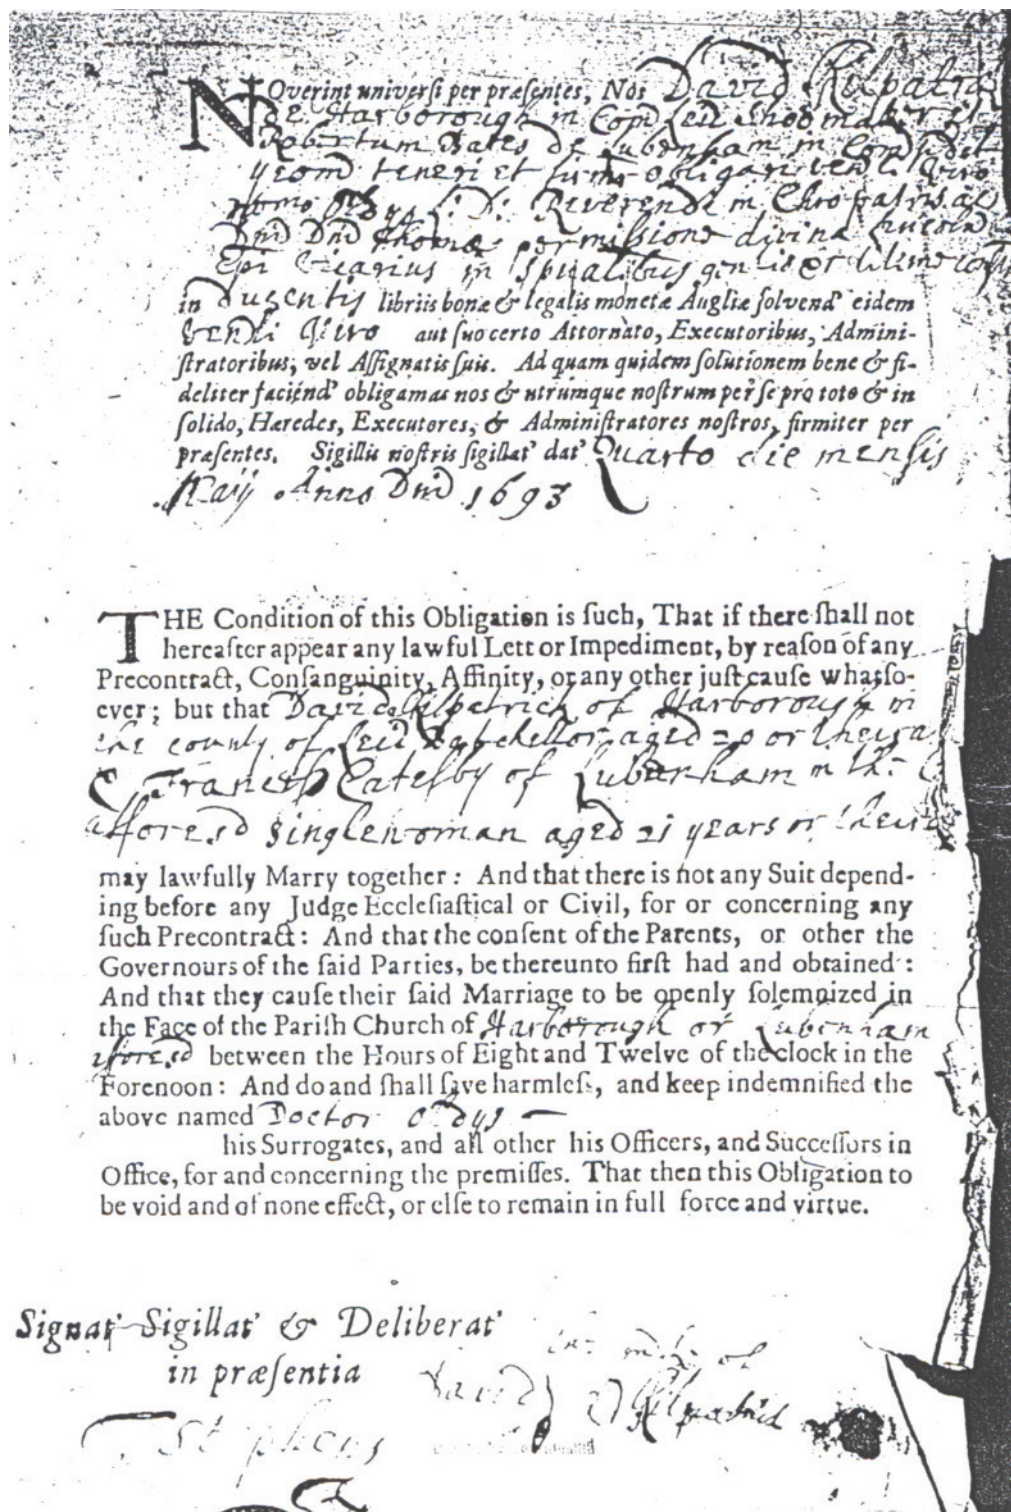 NOverint universi per præsentes, Nos David Kilpatrick
de Harborough in Com Leic Shoomaker et
Robertum Bates de Lubenham in Com
yeom teneri et firmit obligari Ven li Viro
Reverendi in Chro patris ac
Dni Dni Thomæ permissione divina
Epi Vicarius in Spualibus
in ducentis libriis bonæ & legalis monetæ Angliæ ſolvend' eidem
Viro aut ſuo certo Attornato, Executoribus, Admini-
ſtratoribus, vel Aſſignatis ſuis. Ad quam quidem ſolutionem bene & fi-
deliter faciend' obligamas nos & utrumque noſtrum per ſe pro toto & in
ſolido, Hæredes, Executores, & Adminiſtratores noſtros, firmiter per
præſentes. Sigillis noſtris ſigillat' dat' Quarto die mensis
Maij Anno Dni 1693
THE Condition of this Obligation is ſuch, That if there ſhall not
hereafter appear any lawful Lett or Impediment, by reaſon of any
Precontract, Conſanguinity, Affinity, or any other juſt cauſe whatſo-
ever; but that David Kilpatrick of Harborough in
the county of Leic Batchellor aged 20 or theira
& Frances Catesby of Lubenham in th:
afforesd Singlewoman aged 21 years or
may lawfully Marry together: And that there is not any Suit depend-
ing before any Judge Eccleſiaſtical or Civil, for or concerning any
ſuch Precontract: And that the conſent of the Parents, or other the
Governours of the ſaid Parties, be thereunto firſt had and obtained:
And that they cauſe their ſaid Marriage to be openly ſolemnized in
the Face of the Pariſh Church of Harborough or Lubenham
aforesd between the Hours of Eight and Twelve of the clock in the
Forenoon: And do and ſhall ſave harmleſs, and keep indemnified the
above named Doctor Oldys
his Surrogates, and all other his Officers, and Succeſſors in
Office, for and concerning the premiſſes. That then this Obligation to
be void and of none effect, or elſe to remain in full force and virtue.
Signat' Sigillat' & Deliberat'
in præſentia
David Kilpatrick